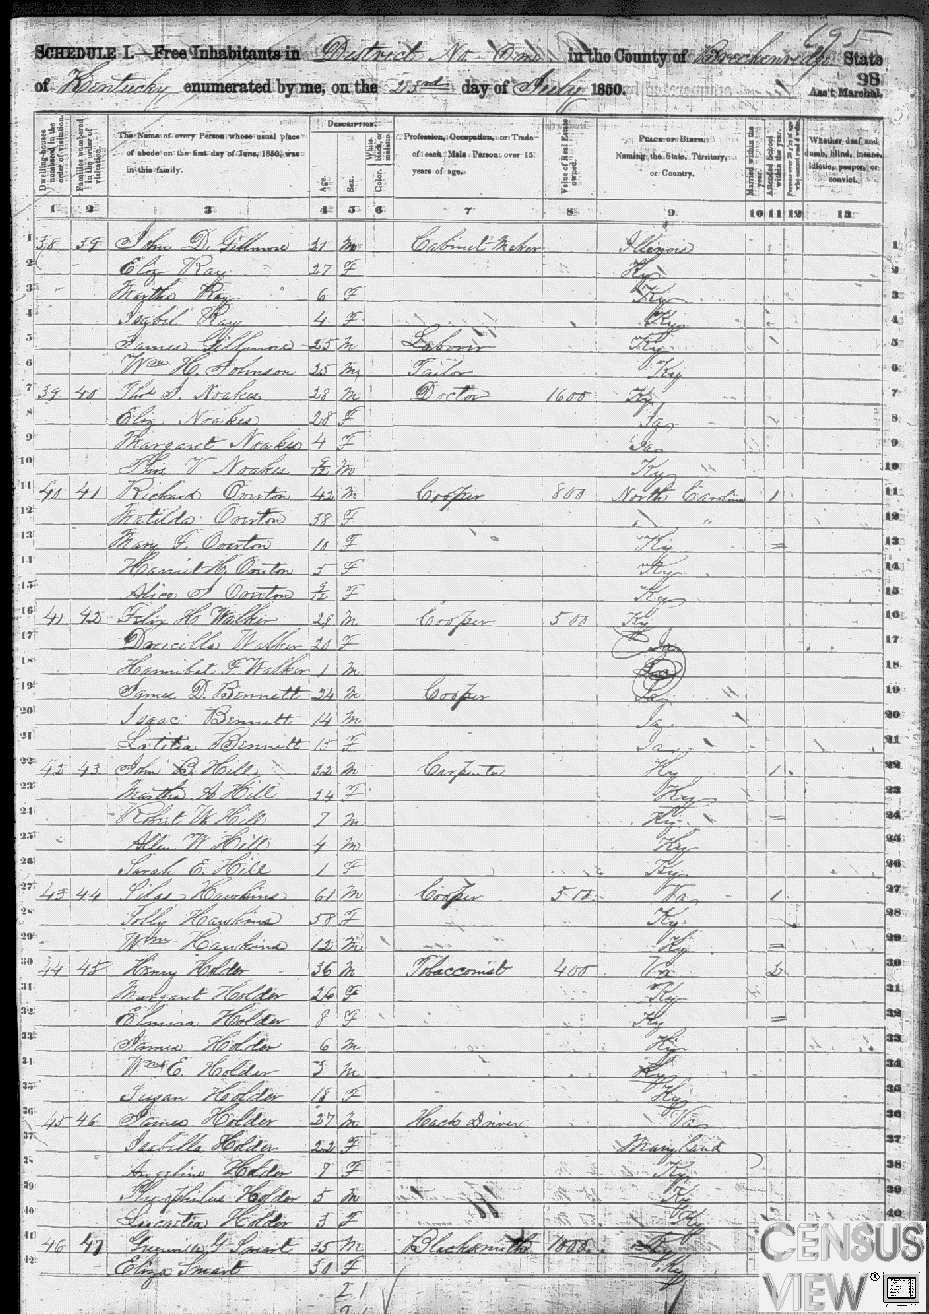 695
SCHEDULE I.—Free Inhabitants in District No. One in the County of Breckenridge State
of Kentucky enumerated by me, on the 23rd day of July 1850. 98 Ass't Marshal.
Dwelling-houses numbered in the order of visitation. Families numbered in the order of visitation. The Name of every Person whose usual place of abode on the first day of June, 1850, was in this family. DESCRIPTION. Age. Sex. Color, White, black, or mulatto. Profession, Occupation, or Trade of each Male Person over 15 years of age. Value of Real Estate owned. PLACE OF BIRTH. Naming the State, Territory, or Country. Married within the year. Attended School within the year. Persons over 20 y'rs of age who cannot read and write. Whether deaf and dumb, blind, insane, idiotic, pauper, or convict.
1 2 3 4 5 6 7 8 9 10 11 12 13
1 38 39 John D. Gillmore 21 M Cabinet Maker Illinois 1
2 Eliz Ray 27 F Ky 2
3 Martha Ray 6 F Ky 3
4 Isabel Ray 4 F Ky 4
5 James Gillmore 25 M Laborer Ky 5
6 Wm H. Johnson 25 M Tailor Ky 6
7 39 40 Thos J. Noakes 28 M Doctor 1600 Ky 7
8 Eliz Noakes 28 F Ia 8
9 Margaret Noakes 4 F Ia 9
10 V Noakes 9/12 M Ky 10
11 40 41 Richard Owton 42 M Cooper 800 North Carolina 1 11
12 Matilda Owton 38 F " 12
13 Mary F. Owton 10 F Ky = 13
14 Harriet H. Owton 5 F Ky 14
15 Alice S Owton 9/12 F Ky 15
16 41 42 Felix H. Walker 28 M Cooper 500 Ky 16
17 Drucilla Walker 20 F Ia 17
18 Hannibal F Walker 1 M 18
19 James D. Bennett 24 M Cooper Ia 19
20 Isaac Bennett 14 M Ia 20
21 Latitia Bennett 15 F Ia 21
22 42 43 John B. Hill 32 M Carpenter Ky 1 22
23 Martha A Hill 24 F Ky 23
24 Robt W Hill 7 M Ky = 24
25 Allen W Hill 4 M Ky 25
26 Sarah E. Hill 1 F Ky 26
27 43 44 Silas Hawkins 61 M Cooper 500 Va 1 27
28 Polly Hawkins 58 F Ky 28
29 Wm Hawkins 12 M Ky = 29
30 44 45 Henry Holder 36 M Tobacconist 400 Va 2 30
31 Margaret Holder 26 F Ky 31
32 Elmira Holder 8 F Ky = 32
33 James Holder 6 M Ky 33
34 Wm E. Holder 3 M Ky 34
35 Susan Holder 18 F Ky 35
36 45 46 James Holder 27 M Hack Driver Va 36
37 Isabella Holder 22 F Maryland 37
38 Angeline Holder 7 F Ky 38
39 Theophilus Holder 5 M Ky 39
40 Lucretia Holder 3 F Ky 40
41 46 47 G Smart 35 M Blacksmith 1000 Ky
42 Eliza Smart 30 F Ky
21
CENSUS
VIEW®